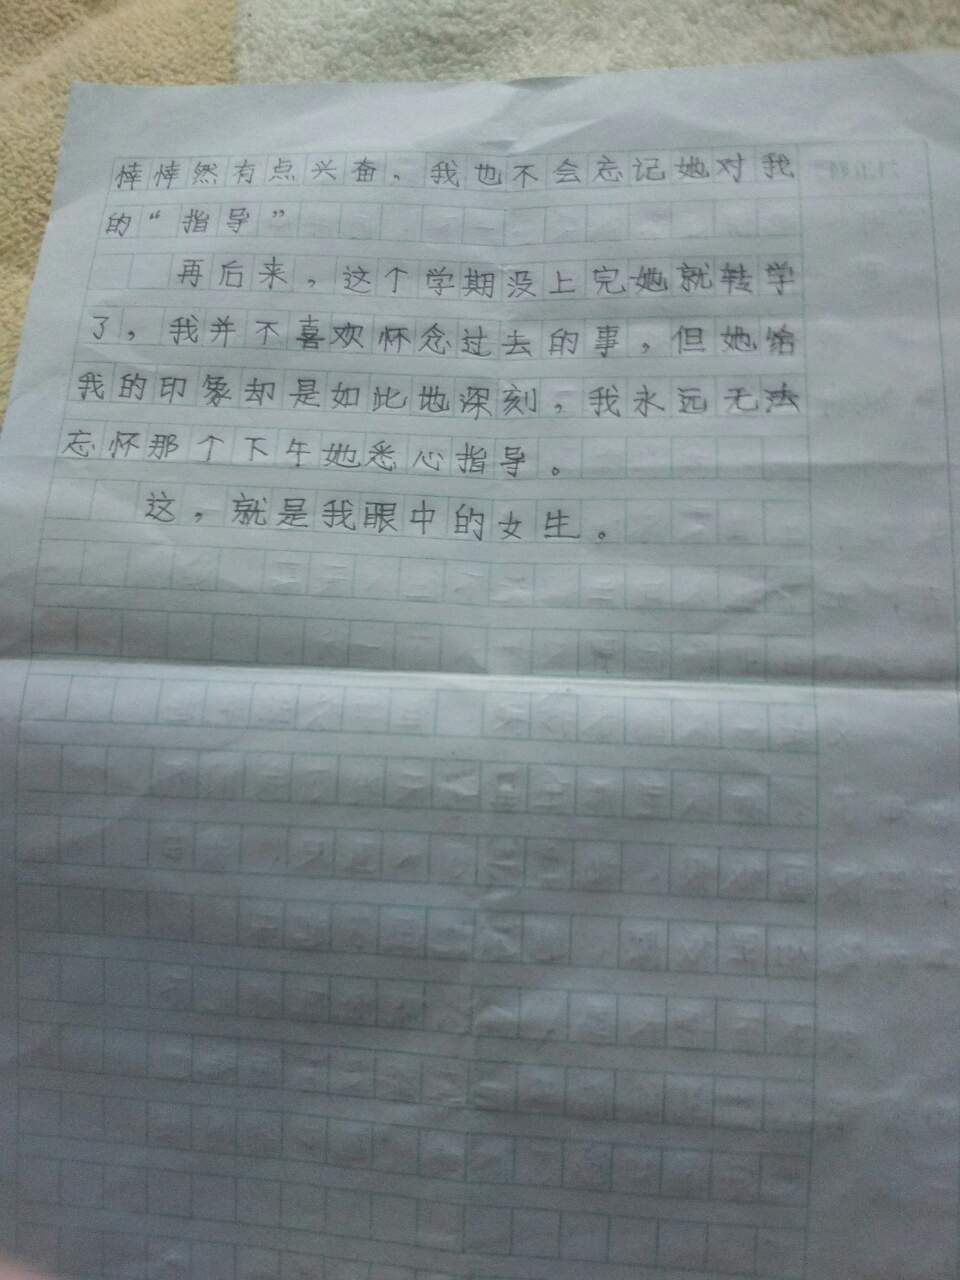 悻悻然有点兴奋，我也不会忘记她对我
的“指导”
再后来，这个学期没上完她就转学
了，我并不喜欢怀念过去的事，但她给
我的印象却是如此地深刻，我永远无法
忘怀那个下午她悉心指导。
这，就是我眼中的女生。